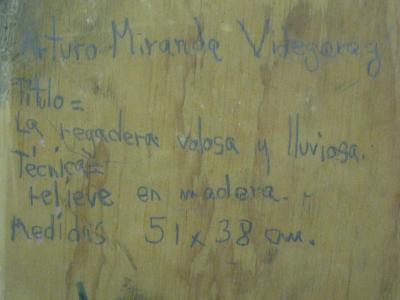 Arturo Miranda Videgaray
Título=
La regadera volosa y lluviosa.
Técnica=
relieve en madera.-
Medidas 51 x 38 cm.